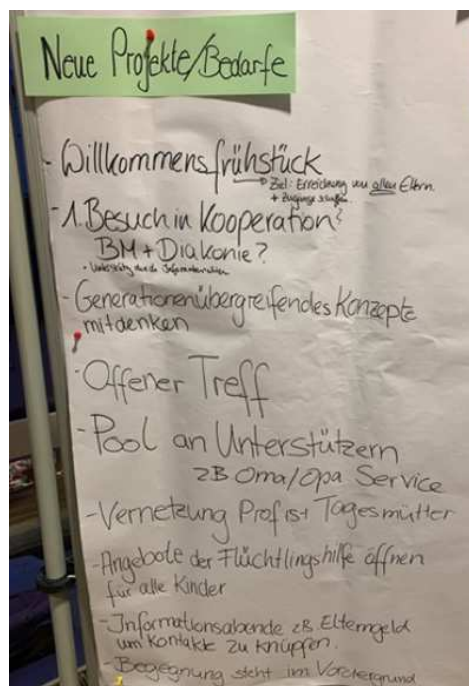 Neue Projekte/Bedarfe
- Willkommensfrühstück
→ Ziel: Erreichung von allen Eltern
+ Zugänge schaffen
- 1. Besuch in Kooperation?
BM + Diakonie?
- Generationenübergreifendes Konzepte
mitdenken
- Offener Treff
- Pool an Unterstützern
zB Oma/Opa Service
- Vernetzung Profis + Tagesmütter
- Angebote der Flüchtlingshilfe öffnen
für alle Kinder
- Informationsabende zB Elterngeld
um Kontakte zu knüpfen.
- Begegnung steht im Vordergrund